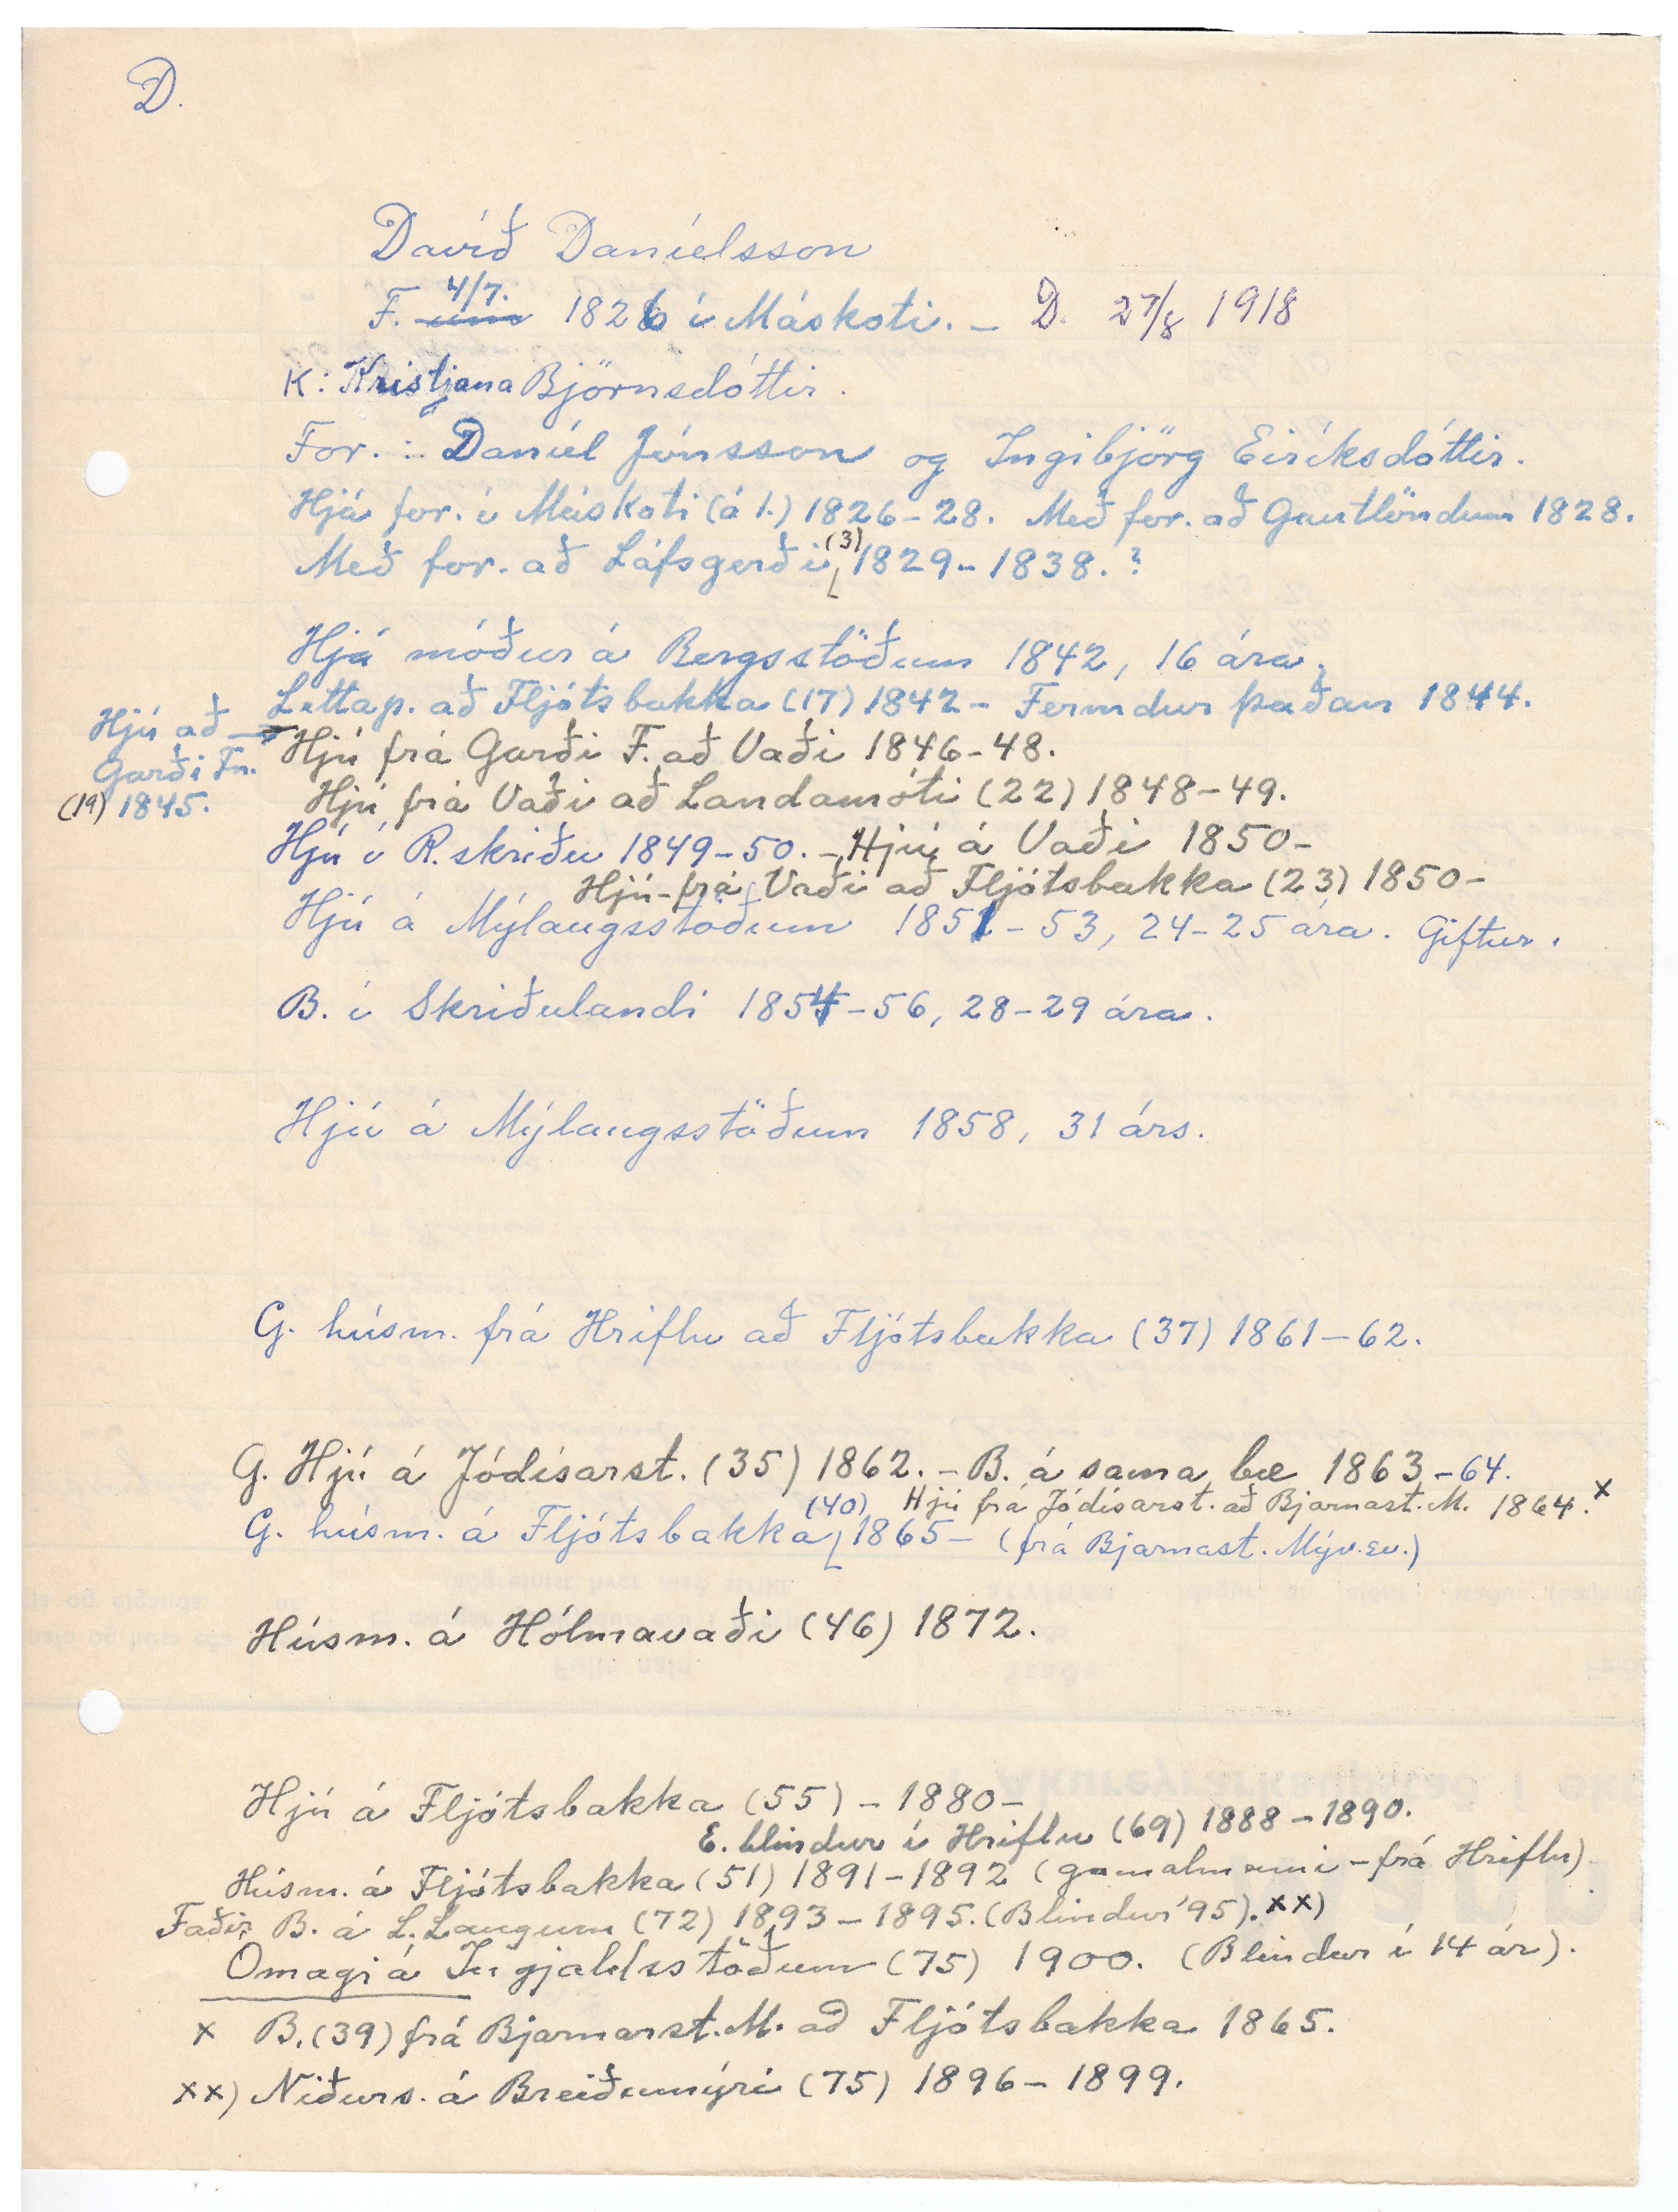 D.
Davíð Daníelsson
F. 4/7. 1826 í Máskoti. – D. 27/8 1918
K: Kristjana Björnsdóttir.
For.: Daníel Jónsson og Ingibjörg Eiríksdóttir.
Hjá for. í Máskoti (á 1.) 1826-28. Með for. að Gautlöndum 1828.
Með for. að Láfsgerði (3) 1829-1838.?
Hjá móður á Bergsstöðum 1842, 16 ára.
Léttap. að Fljótsbakka (17) 1842- Fermdur þaðan 1844.
Hjú að
Garði Fn.
(19) 1845.
Hjú frá Garði F. að Vaði 1846-48.
Hjú frá Vaði að Landamóti (22) 1848-49.
Hjú í R.skriðu 1849-50. - Hjú á Vaði 1850-
Hjú frá Vaði að Fljótsbakka (23) 1850-
Hjú á Mýlaugsstöðum 1851-53, 24-25 ára. Giftur.
B. í Skriðulandi 1854-56, 28-29 ára.
Hjú á Mýlaugsstöðum 1858, 31 árs.
G. húsm. frá Hriflu að Fljótsbakka (37) 1861-62.
G. Hjú á Jódísarst. (35) 1862. - B. á sama bæ 1863-64.
Hjú frá Jódísarst. að Bjarnast. M. 1864. x
G. húsm. á Fljótsbakka (40) 1865- (frá Bjarnast. Mýv.sv.)
Húsm. á Hólmavaði (46) 1872.
Hjú á Fljótsbakka (55) - 1880-
E. blindur í Hriflu (69) 1888-1890.
Húsm. á Fljótsbakka (51) 1891-1892 (gamalmenni - frá Hriflu)
Faðir B. á L.Laugum (72) 1893-1895. (Blindur '95). xx)
Ómagi á Ingjaldsstöðum (75) 1900. (Blindur í 14 ár).
x B. (39) frá Bjarnarst. M. að Fljótsbakka 1865.
xx) Niðurs. á Breiðumýri (75) 1896-1899.